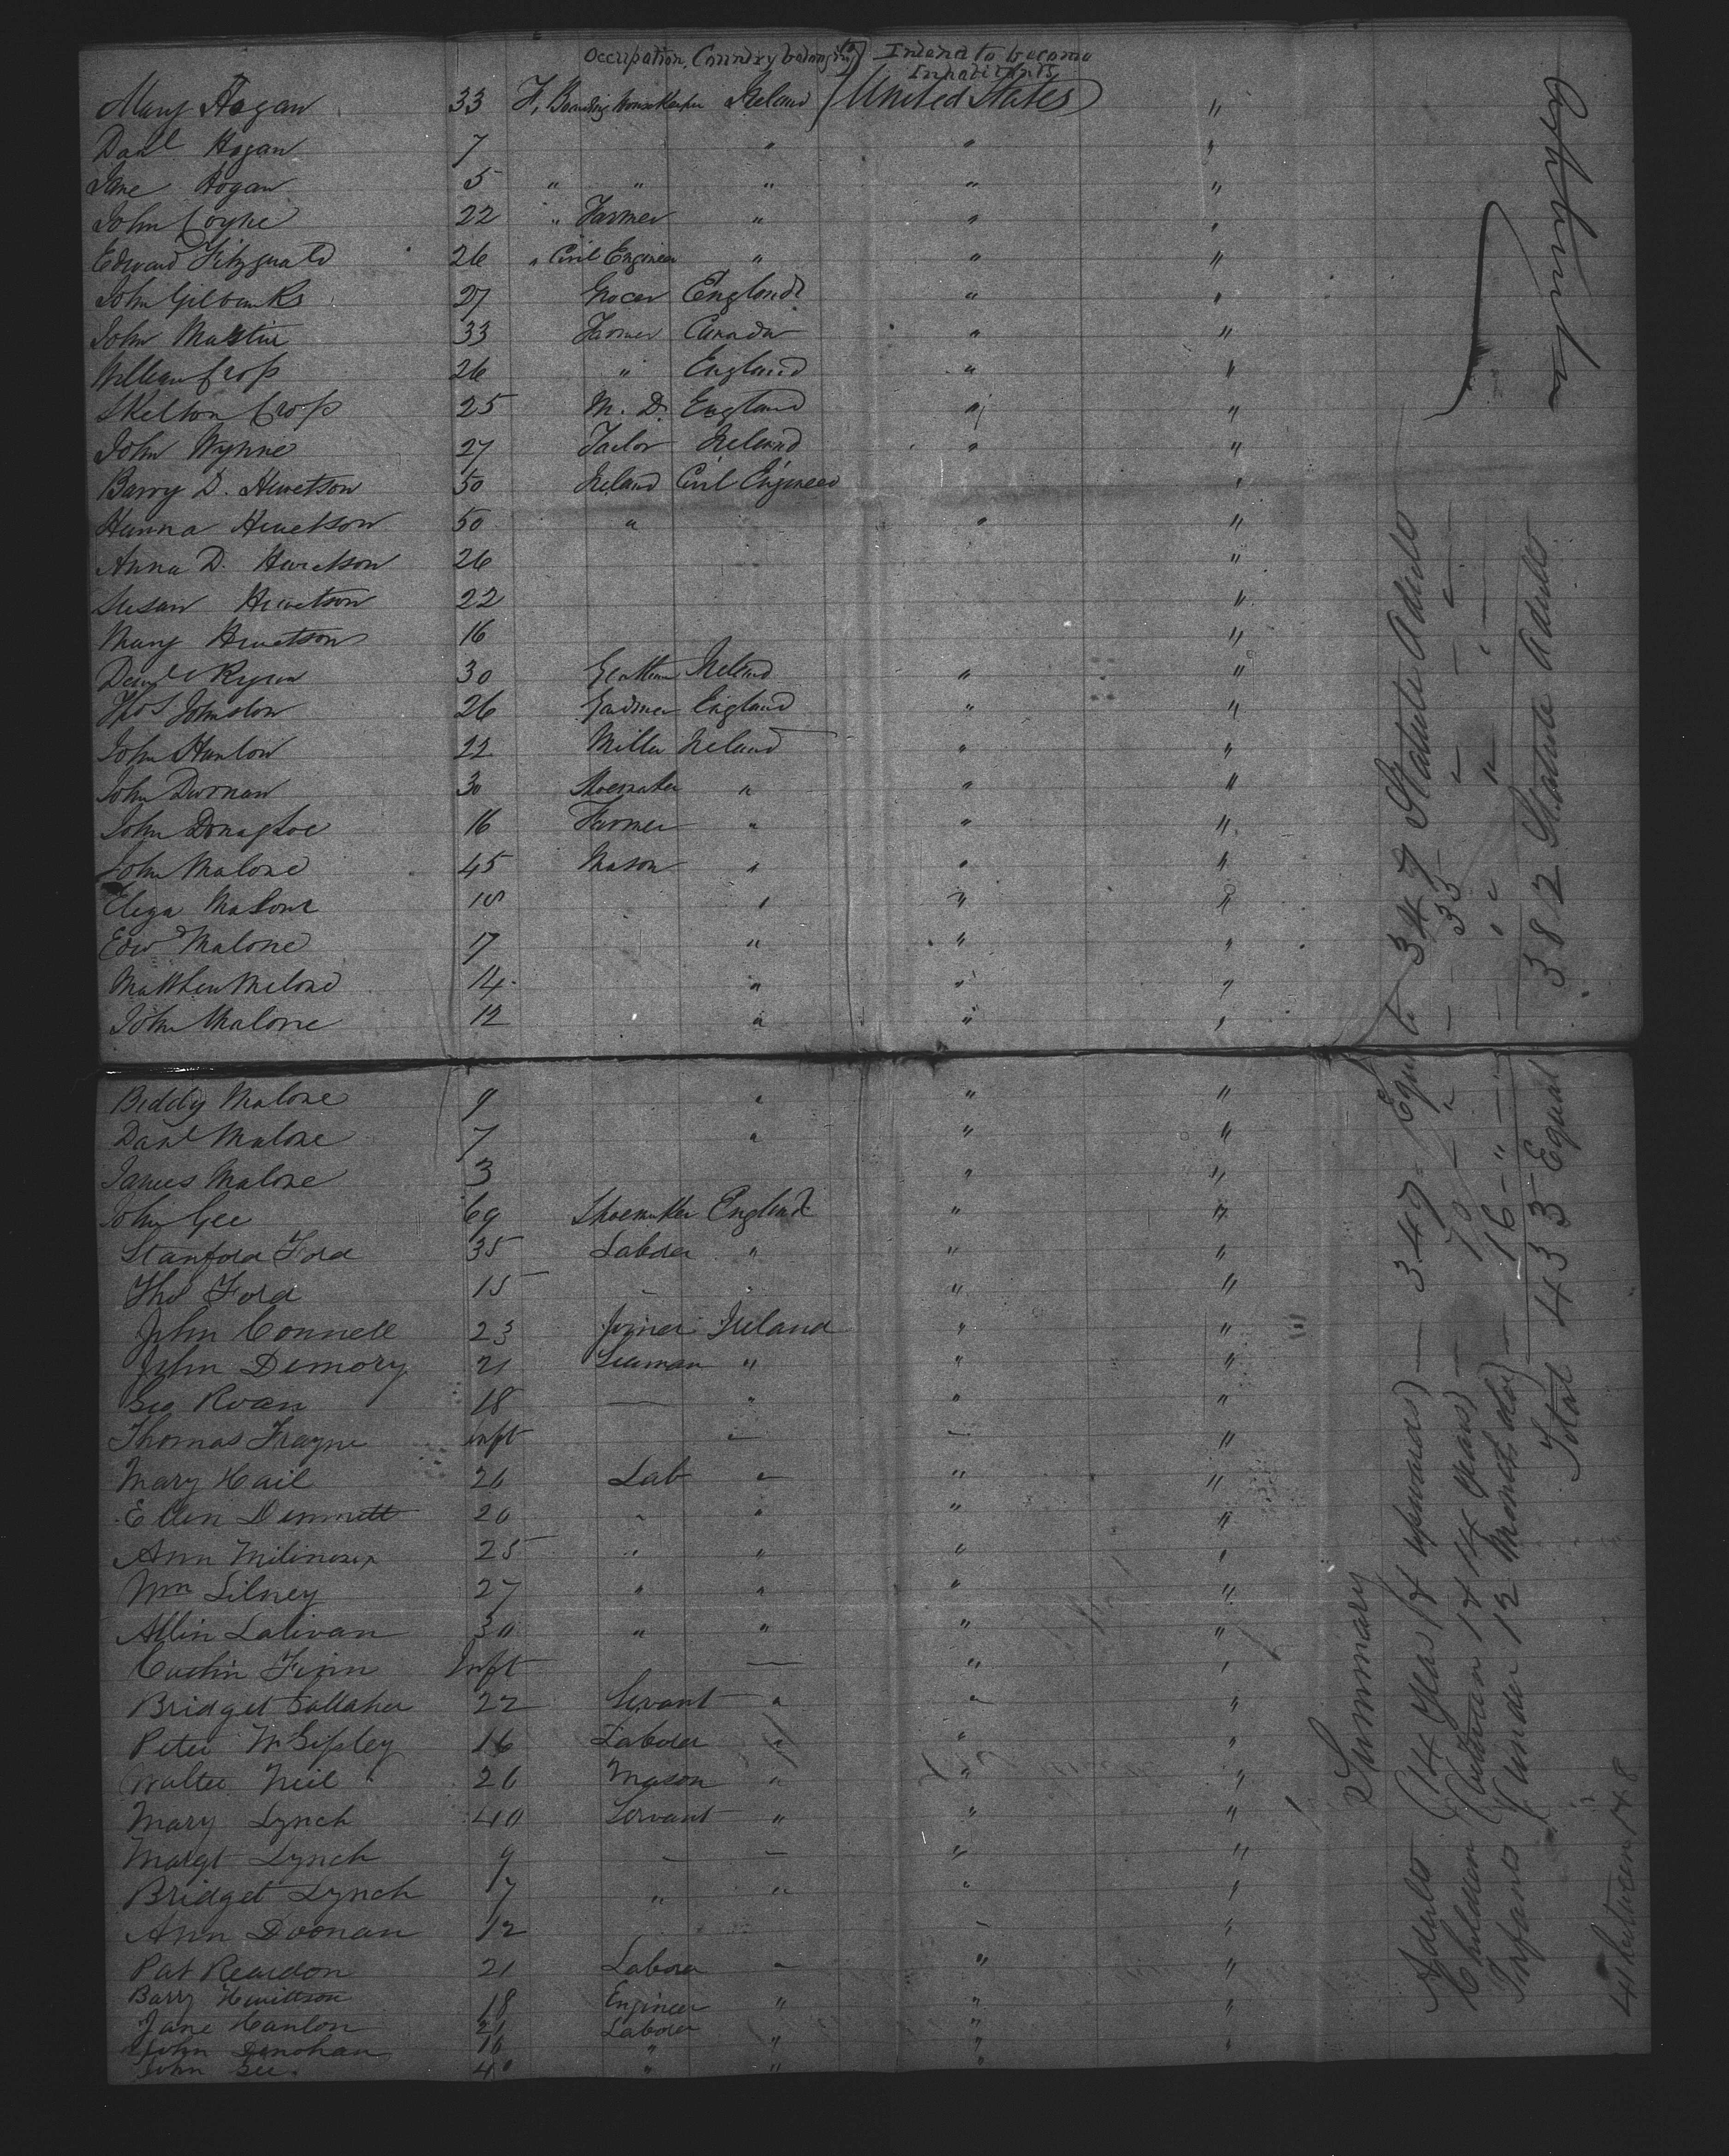 Occupation, Country belonging to Intend to become
Inhabitants
Mary Hogan 33 F. Boarding house Keeper Ireland United States "
Danl Hogan 7 " " "
Jane Hogan 5 " " " " "
John Coyne 22 " Farmer " " "
Edward Fitzgerald 26 " Civil Engineer " " "
John Gilbanks 27 Grocer England " "
John Mastin 33 Farmer Canada " "
William Cross 26 " England " "
Skelton Cross 25 M.D. England " "
John Wynne 27 Tailor Ireland " "
Barry D. Hewetson 50 Ireland Civil Engineer "
Hanna Hewetson 50 " " "
Anna D. Hewetson 26 "
Susan Hewetson 22 "
Mary Hewetson 16 "
Danl Ryan 30 Ireland " "
Thos Johnston 26 England " "
John Hanlon 22 Miller Ireland " "
John Dornan 30 Shoemaker " " "
John Donaghoe 16 Farmer " " "
John Malone 45 Mason " " "
Eliza Malone 18 " " "
Edwd Malone 17 " " "
Matthew Malone 14 " " "
John Malone 12 " " "
Biddy Malone 9 " " "
Danl Malone 7 " " "
James Malone 3 " "
John Gee 69 Shoemaker England " "
Stanford Ford 35 Laborer " " "
Thos Ford 15 - " " "
John Connell 23 Joiner Ireland " "
John Demory 21 Seaman " " "
Geo Roan 18 — " " "
Thomas Frayne Infт " — "
Mary Hail 26 Lab " " "
Ellen Dimmett 20 " " " "
Ann 25 " " " "
Wm Silney 27 " " " "
Allin Lalivan 30 " " " "
Finn Inft — " "
Bridget Gallaher 22 Servant " " "
Peter McGipley 16 Laborer " " "
Walter Neil 26 Mason " " "
Mary Lynch 40 Servant " " "
Margt Lynch 9 — — " "
Bridget Lynch 7 " " " "
Ann Doonan 12 - "
Pat Reardon 21 Laborer " " "
Barry Hewittson 18 Engineer " " "
Jane Hanlon 21 Laborer "
John Donohan 16 " " " "
John Gee 40 " " "
Summary
Adults (14 years & upwards) — 347 Equal to 347 Statute Adults
Children (between 1 & 14 years) — 70 " — 35 "
Infants (under 12 months old) — 16 - " — " " "
Total 433 Equal 382 Statute Adults